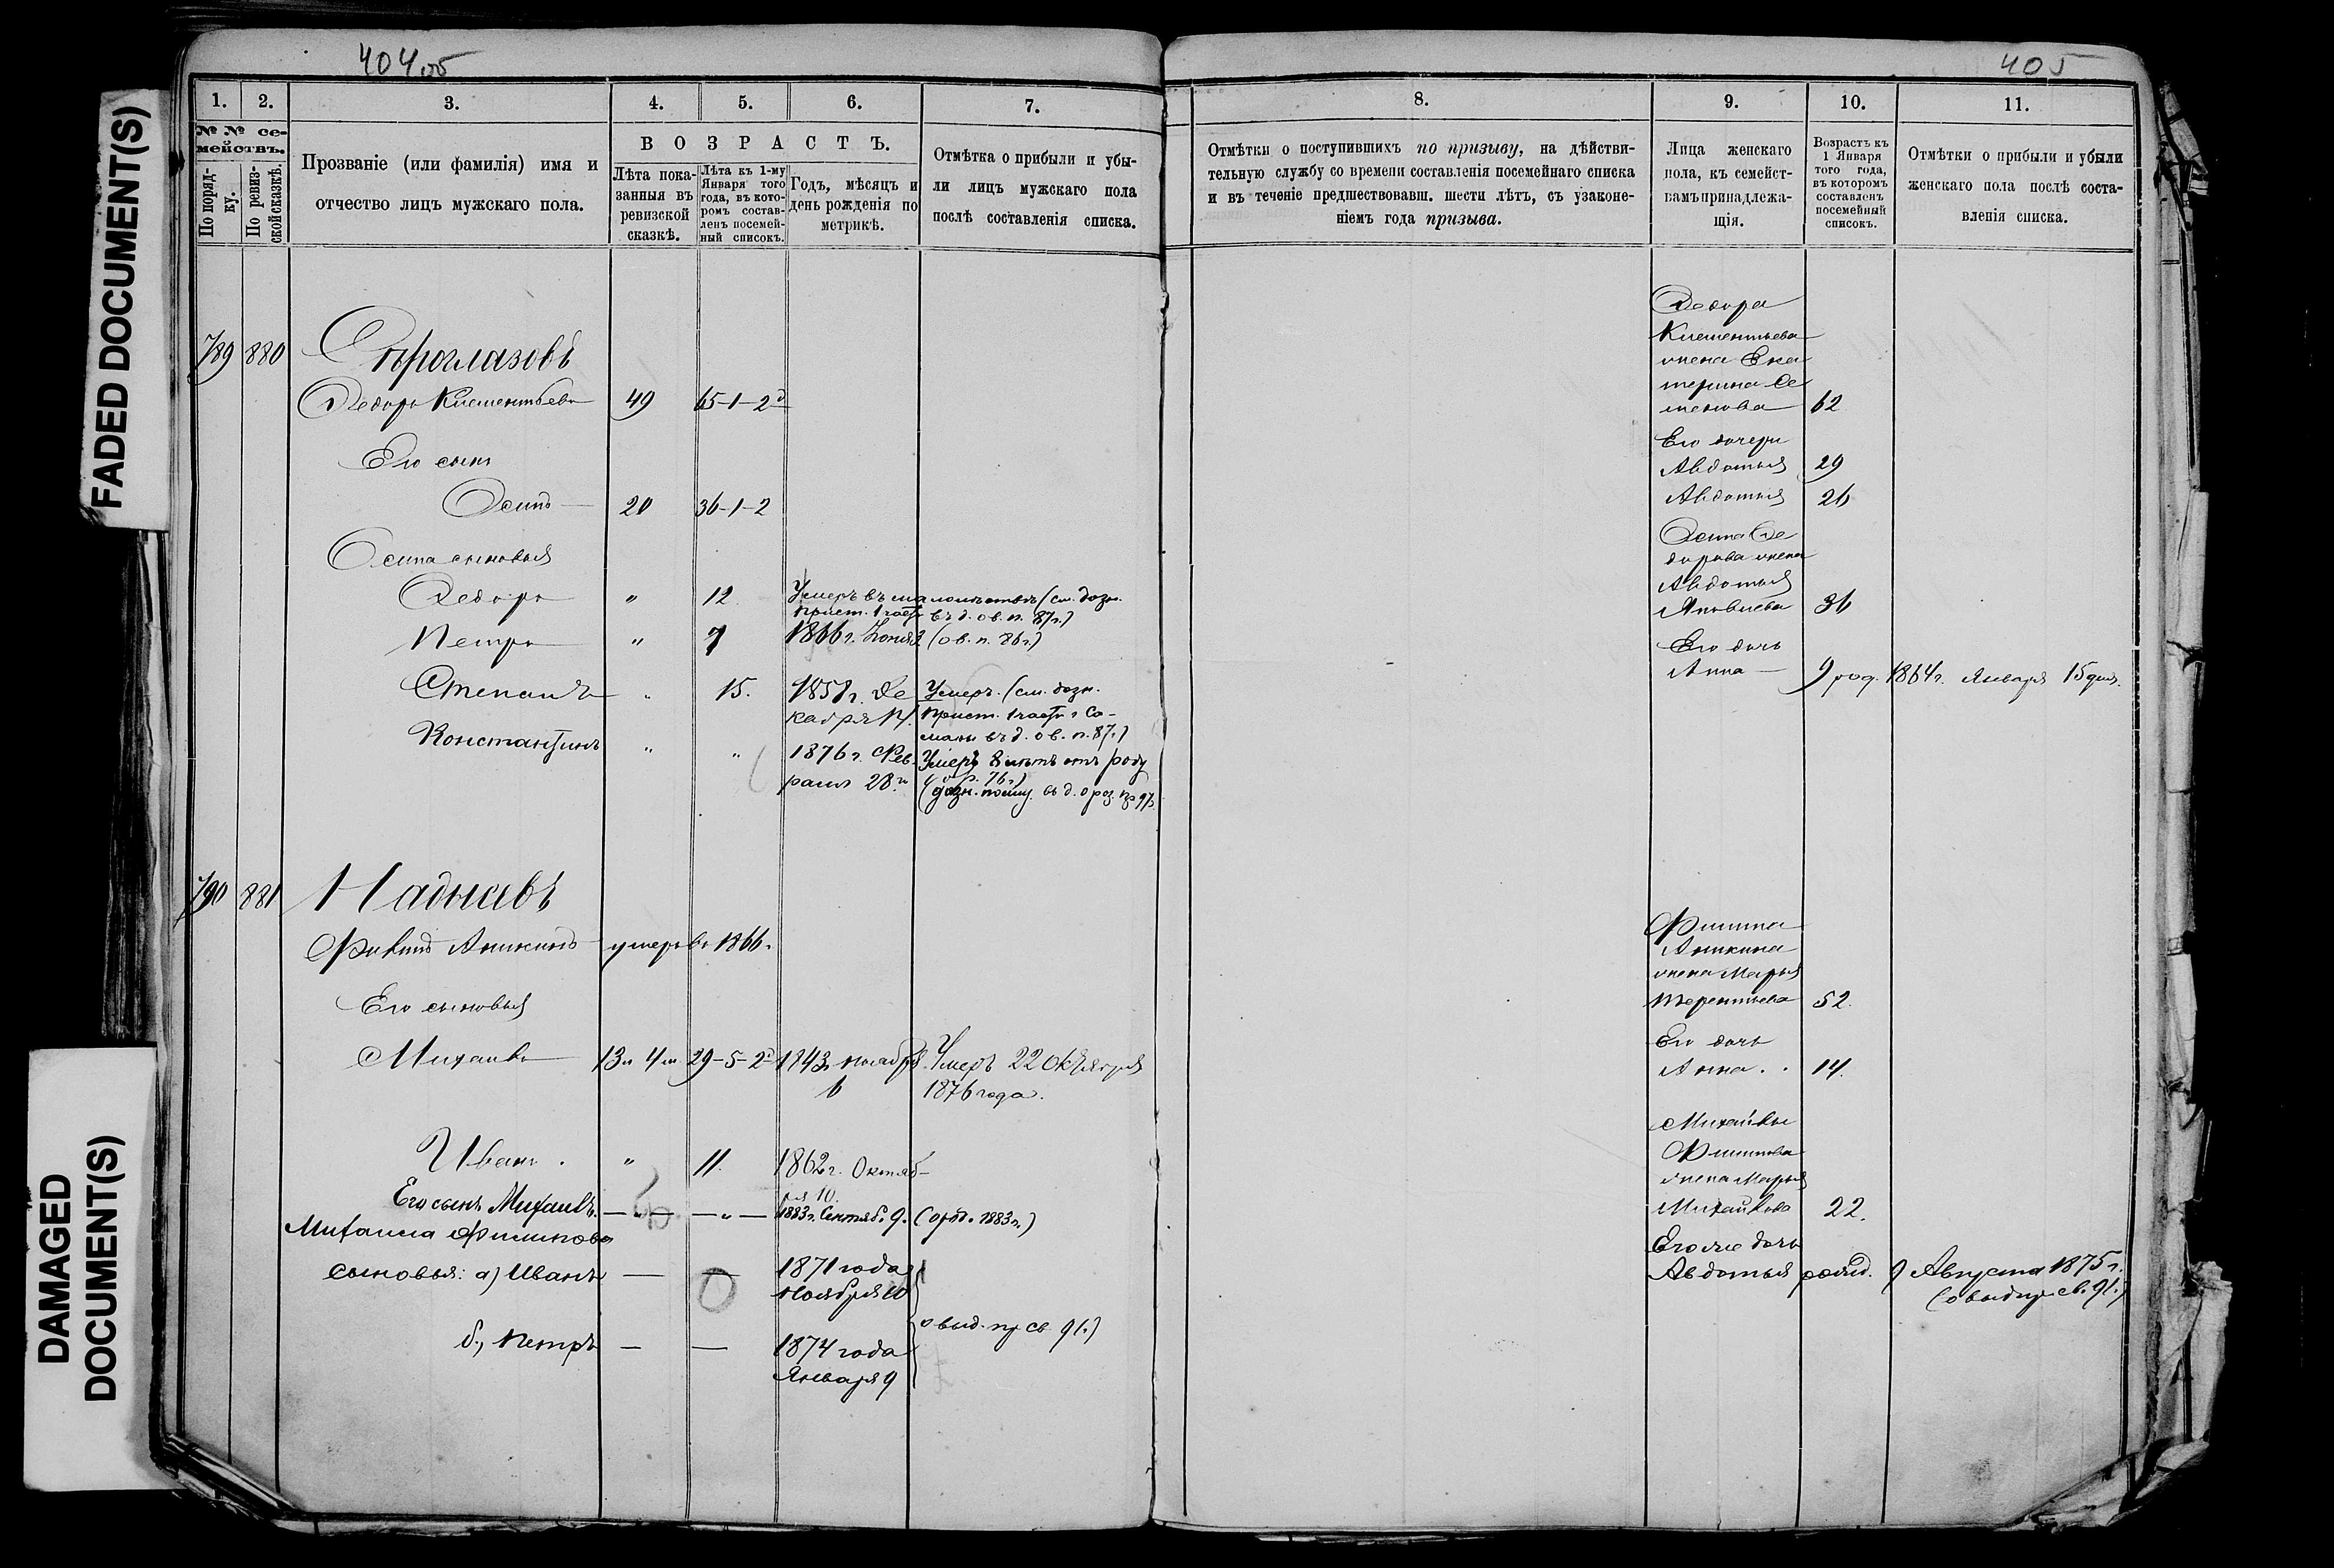 FADED DOCUMENT(S)
DAMAGED
DOCUMENT(S)
404об
1. 2. 3. 4. 5. 6. 7.
№ № се-
мействъ.
По поряд-
ку.
По ревиз-
ской сказкѣ.
Прозваніе (или фамилія) имя и
отчество лицъ мужскаго пола.
ВОЗРАСТЪ.
Лѣта пока-
занныя въ
ревизской
сказкѣ.
Лѣта къ 1-му
Января того
года, въ кото-
ромъ состав-
ленъ посемей-
ный списокъ.
Годъ, мѣсяцъ и
день рожденія по
метрикѣ.
Отмѣтка о прибыли и убы-
ли лицъ мужскаго пола
послѣ составленія списка.
789 880
Федоръ Клементьевъ 49 65-1-2д
Его сынъ
Осипъ 20 36-1-2
Осипа сыновья
Федоръ " 12 Умеръ въ малолѣтвѣ (см. дозн.
прист. 1 части въ д. о в. п. 87г.)
Петръ " 7 1866г. Іюня 2 (о в. п. 86г.)
Степанъ " 15. 1858г. Де Умеръ. (см. дозн.
кабря прист. 1 части г. Са-
мары въ д. о в. п. 87г.)
Константинъ " " 1876г. Фев. Умеръ лѣтъ отъ роду
раля 28го (о р. 76г.)
(дозн. полиц. въ д. о роз. пр 97г.
790 881
Надыевъ
Филипъ Аникинъ умеръ въ 1866г.
Его сыновья
Михаилъ 13л 4м 29-5-2д 1843г. ноября Умеръ 22 Октября
6 1876 года.
Иванъ. " 11. 1862г. Октяб-
ря 10.
Его сынъ Михаилъ. — " — — " — 1883г. Сентяб. 9. (о род. 1883г.)
Михаила Филипова
сыновья: а) Иванъ — — 1871 года
Ноября 10
о выд. пр св 91.)
б, Петръ — — 1874 года
Января 9
405
8. 9. 10. 11.
Отмѣтки о поступившихъ по призыву, на дѣйстви-
тельную службу со времени составленія посемейнаго списка
и въ теченіе предшествовавш. шести лѣтъ, съ узаконе-
ніемъ года призыва.
Лица женскаго
пола, къ семейст-
вамъ принадлежа-
щія.
Возрастъ къ
1 Января
того года,
въ которомъ
составленъ
посемейный
списокъ.
Отмѣтки о прибыли и убыли
женскаго пола послѣ соста-
вленія списка.
Федора
Клементьева
жена Ека
терина Се
менова 62
Его дочери
Авдотья 29
Авдотья 26
Осипа Фе
дорова жена
Авдотья
Яковлева 36
Его дочь
Анна — 9 род. 1864г. Января 15 дня.
Филипа
Аникина
жена Марья
Терентьева 52.
Его дочь
Анна.. 14.
Михайлы
Филипова
жена Марья
Михайлова 22.
Его же дочь
Авдотья рожд. 9 Августа 1875г.
(о выд пр св. 91.)